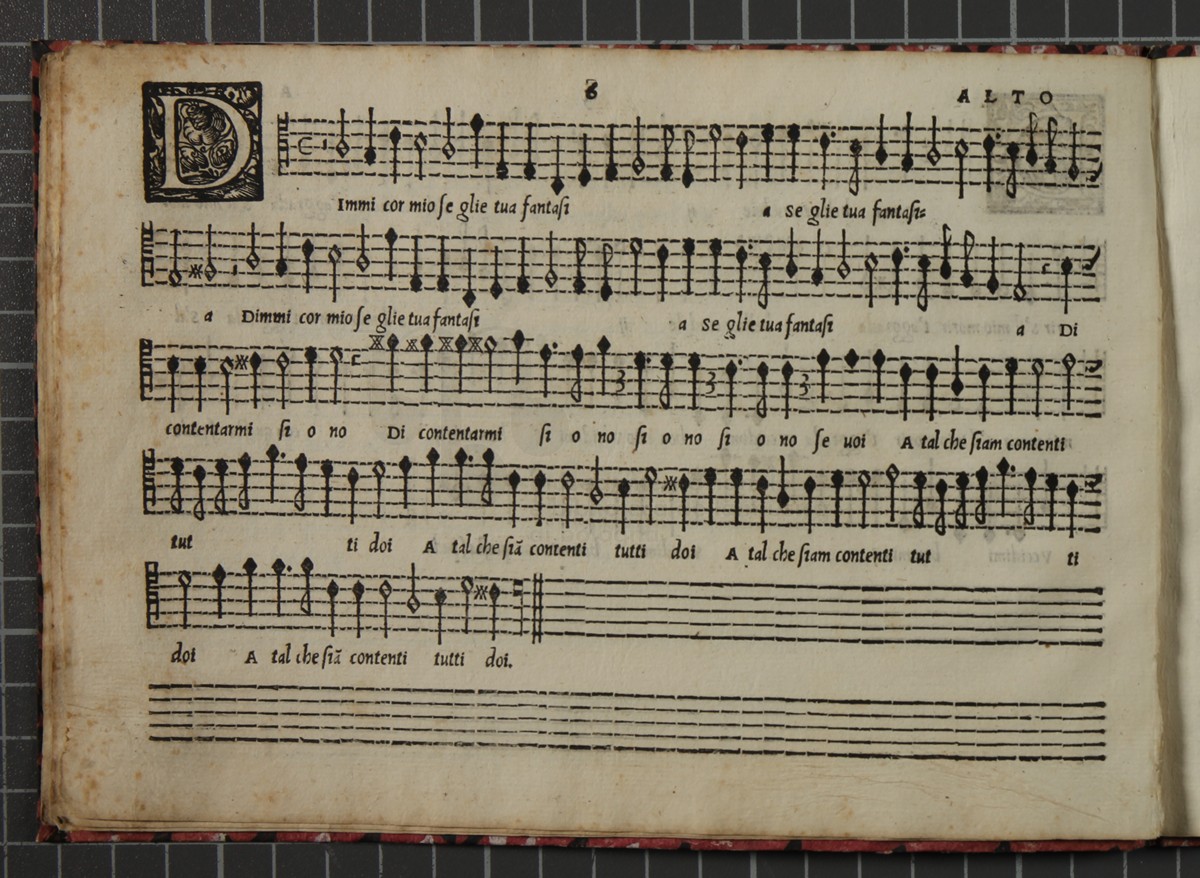 6 ALTO
D Immi cor mio ſe glie tua fantaſi a Se glie tua fantaſi=
a Dimmi cor mio ſe glie tua fantaſi a Se glie tua fantaſi a Di
contentarmi ſi o no Di contentarmi ſi o no ſi o no ſi o no ſe uoi A tal che ſiam contenti
tut ti doi A tal che ſiã contenti tutti doi A tal che ſiam contenti tut ti
doi A tal che ſiã contenti tutti doi.